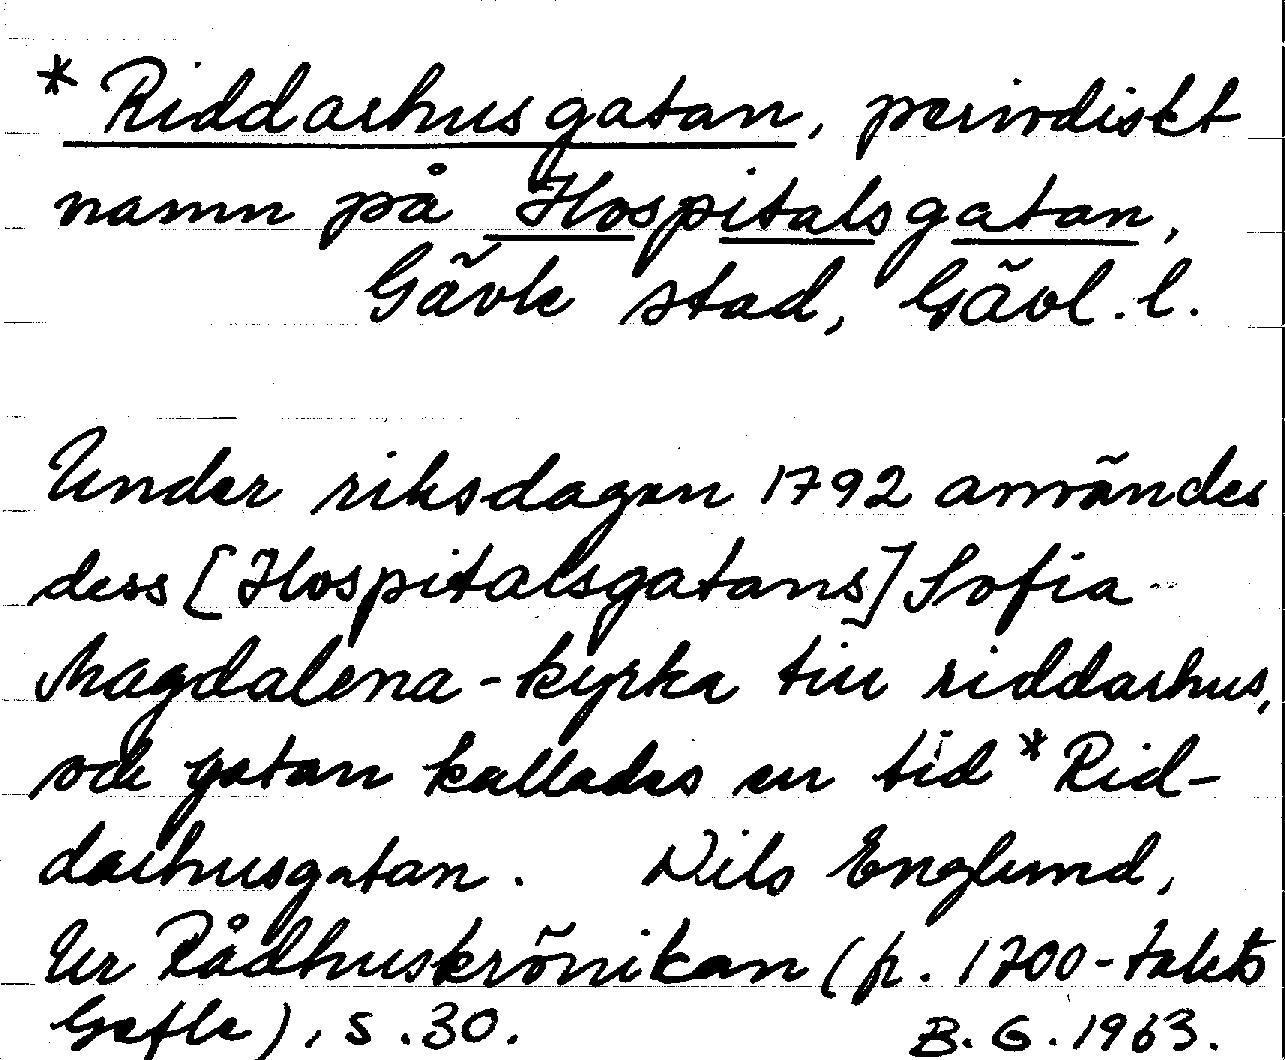 * Riddarhusgatan, periodiskt
namn på Hospitalsgatan,
Gävle stad, Gävl. l.
Under riksdagen 1792 användes
dess [Hospitalsgatans] Sofia
Magdalena-kyrka till riddarhus,
och gatan kallades en tid *Rid-
darhusgatan. Nils Englund,
Ur Rådhuskrönikan (fr. 1700-talets
Gefle), s. 30. B. G. 1963.